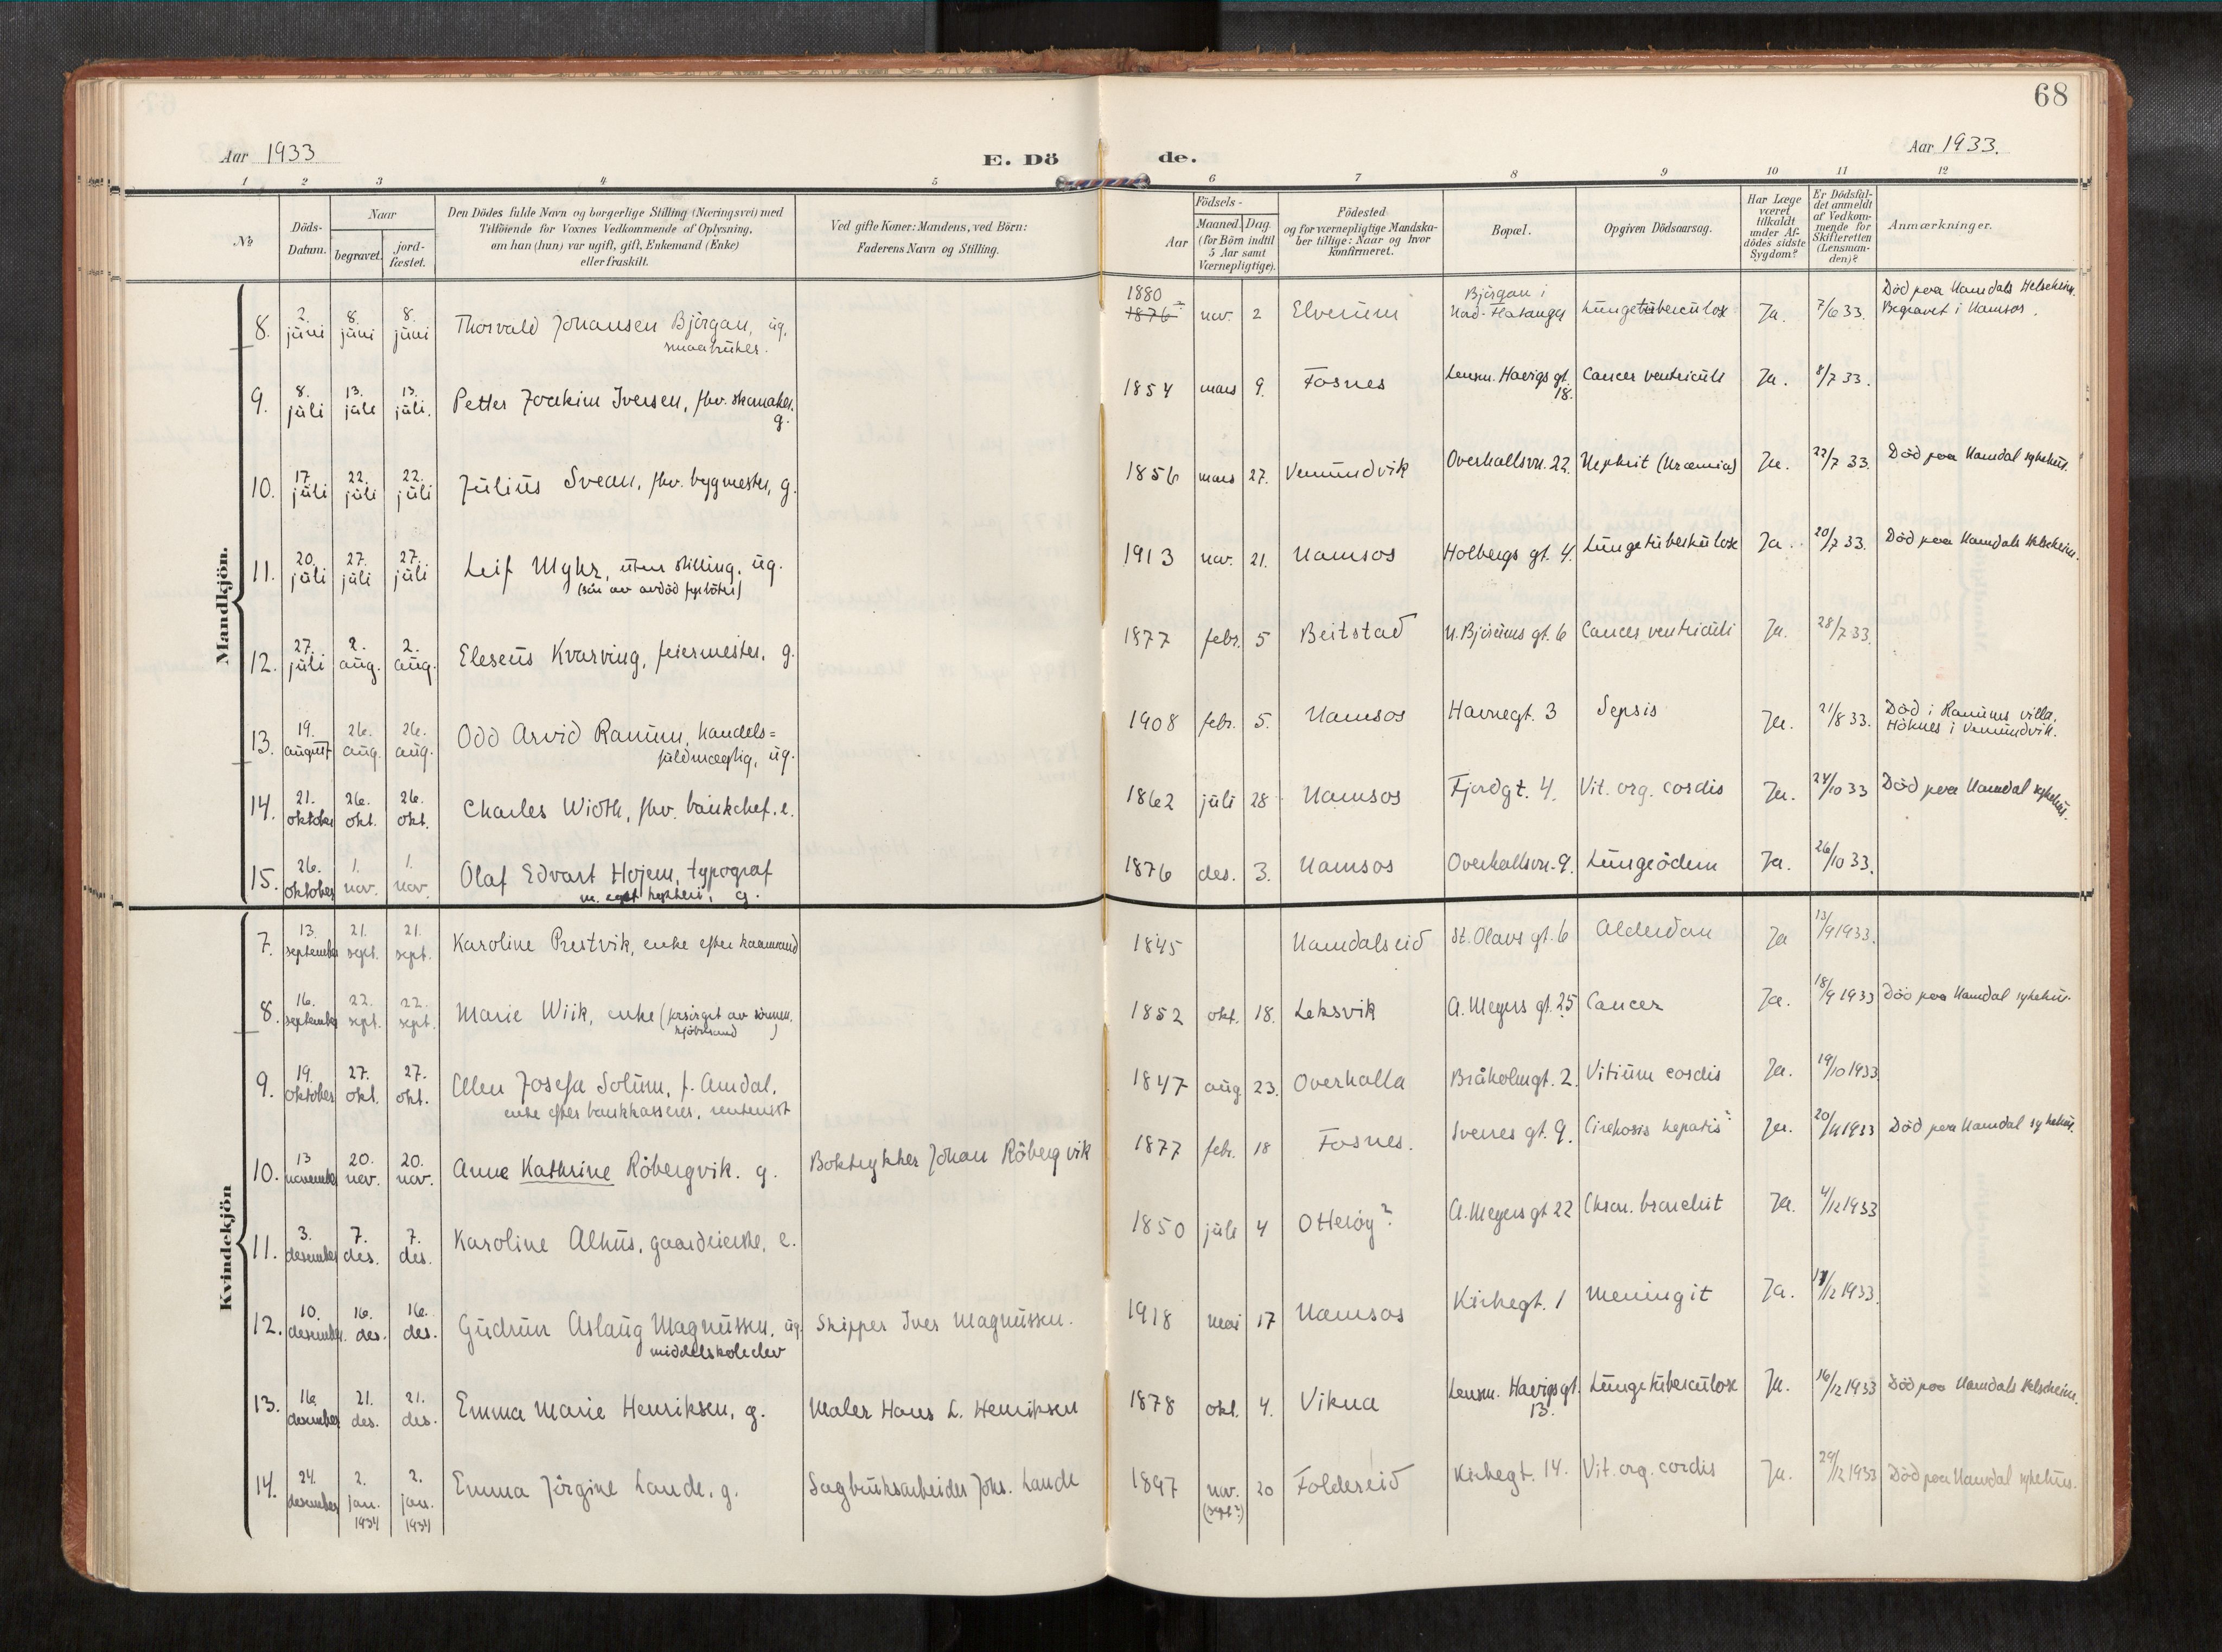 68
Aar 1933
E. Dö
de.
Aar 1933.
1 2 3 4 5 6 7 8 9 10 11 12
№
Döds-
Datum.
Naar
begravet.
jord-
fæstet.
Den Dödes fulde Navn og borgerlige Stilling (Næringsvei) med
Tilföiende for Voxnes Vedkommende af Oplysning,
om han (hun) var ugift, gift, Enkemand (Enke)
eller fraskilt.
Ved gifte Koner: Mandens, ved Börn:
Faderens Navn og Stilling.
Födsels-
Aar
Maaned. Dag.
(for Börn indtil
5 Aar samt
Værnepligtige).
Födested
og for værnepligtige Mandska-
ber tillige: Naar og hvor
konfirmeret.
Bopæl.
Opgiven Dödsaarsag.
Har Læge
været
tilkaldt
under Af-
dödes sidste
Sygdom?
Er Dödsfal-
det anmeldt
af Vedkom-
mende for
Skifteretten
(Lensman-
den)?
Anmærkninger.
Mandkjön.
8. 2. juni 8. juni 8. juni Thorvald Johansen Bjørgan, ug.
småbruker.
1880
1876 nov. 2 Elverum Bjørgan i
Nord-Flatanger Lungetuberculose Ja. 7/6 33. Död paa Namdals Helseheim.
Begravet i Namsos.
9. 8. juli 13. juli 13. juli. Petter Joakim Iversen, fhv. skomaker.
g.
1854 mars 9. Fosnes Lensm. Havigs gt.
18. Cancer ventriculi Ja. 8/7 33.
10. 17. juli 22. juli 22. juli Julius Svean, fhv. bygmester, g.
1856 mars 27. Vemundvik Overhallsvn. 22. Nephrit (Uræmia) Ja. 22/7 33. Död paa Namdal sykehus.
11. 20. juli 27. juli 27. juli Leif Myhr, uten stilling, ug.
1913 nov. 21. Namsos Holbergs gt. 4. Lungetuberkulose Ja. 20/7 33. Död paa Namdals Helseheim.
12. 27. juli 2. aug. 2. aug. Eleseus Kvarving, feiermester, g.
1877 febr. 5 Beitstad Cancer ventriculi Ja. 28/7 33.
13. 19. august 26. aug. 26. aug. Odd Arvid Ranum, handels=
fuldmægtig, ug.
1908 febr. 5. Namsos Havnegt. 3 Sepsis Ja. 21/8 33. Död i Ranums villa,
Höknes i Vemundvik.
14. 21. oktober 26. okt. 26. okt. Charles Wioth, fhv. bankchef, e.
1862 juli 28 Namsos Fjordgt. 4. Vit. org. cordis Ja. 24/10 33 Död paa Namdal sykehus.
15. 26. oktober 1. nov. 1. nov. Olaf Edvart Hojem, typograf
g.
1876 des. 3. Namsos Overhallsvn. 9. Lungeödem Ja. 26/10 33.
Kvindekjön
7. 13. september 21. sept. 21. sept. Karoline Prestvik, enke efter
1845 Namdalseid St. Olavs gt. 6 Alderdom Ja 13/9 1933.
8. 16. september 22. sept. 22. sept. Marie Wiik, enke (forsörget av sönnen,
kjöbmand)
1852 okt. 18. Leksvik A. Meyers gt. 25 Cancer Ja. 18/9 1933 Död paa Namdal sykehus.
9. 19. oktober 27. okt. 27. okt. Ellen Josefa Solum, f. Amdal,
enke efter bankkasserer, rentenist
1847 aug 23. Overhalla Bråholmgt. 2. Vitium cordis Ja. 19/10 1933
10. 13 november 20. nov. 20. nov. Anne Kathrine Röbergvik. g. Boktrykker Johan Röbergvik
1877 febr. 18 Fosnes. Sverres gt. 9. Cirrhosis hepatis? Ja. 20/11 1933 Död paa Namdal sykehus.
11. 3. desember 7. des. 7. des. Karoline Alhus, gaardeierske, e.
1850 juli 4 Otteröy? A. Meyers gt 22 Chron. bronchit Ja. 4/12 1933
12. 10. desember. 16. des. 16. des. Gudrun Aslaug Magnussen, ug. Skipper Iver Magnussen.
middelskoleelev
1918 mai 17 Namsos Kirkegt. 1 Meningit Ja. 11/12 1933.
13. 16 desember 21. des. 21. des. Emma Marie Henriksen, g. Maler Hans L. Henriksen
1878 okt. 4. Vikna Lensm. Havigs gt.
13. Lungetuberculose Ja. 16/12 1933 Död paa Namdals Helseheim.
14. 24. desember 2. jan. 1934 2. jan. 1934 Emma Jörgine Lande, g. Sagbruksarbeider Johs. Lande
1897 nov. 20 Foldereid Kirkegt. 14. Vit. org. cordis Ja. 29/12 1933 Död paa Namdal sykehus.
(sept?)